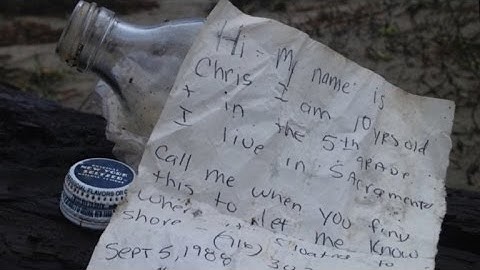 Hi - My name is
Chris I am 10 yrs old
+ in the 5Th grade
I live in Sacramento
Call me when You find
this to let me know
where it floated to
shore - (916)
SEPT 5, 1988
NEW YORK
SELTZER
FLAVORS